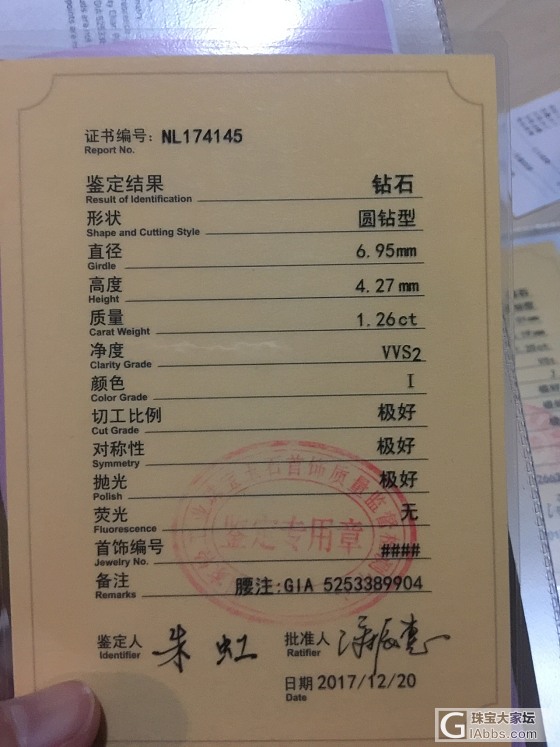 证书编号: NL174145
Report No.
鉴定结果 钻石
Result of Identification
形状 圆钻型
Shape and Cutting Style
直径 6.95mm
Girdle
高度 4.27mm
Height
质量 1.26ct
Carat Weight
净度 VVS2
Clarity Grade
颜色 I
Color Grade
切工比例 极好
Cut Grade
对称性 极好
Symmetry
抛光 极好
Polish
荧光 无
Fluorescence
首饰编号 ####
Jewelry No.
备注 腰注:GIA 5253389904
Remarks
鉴定专用章
鉴定人 朱虹 批准人
Identifier Ratifier
日期 2017/12/20
Date
珠宝大家坛
GIAbbs.com